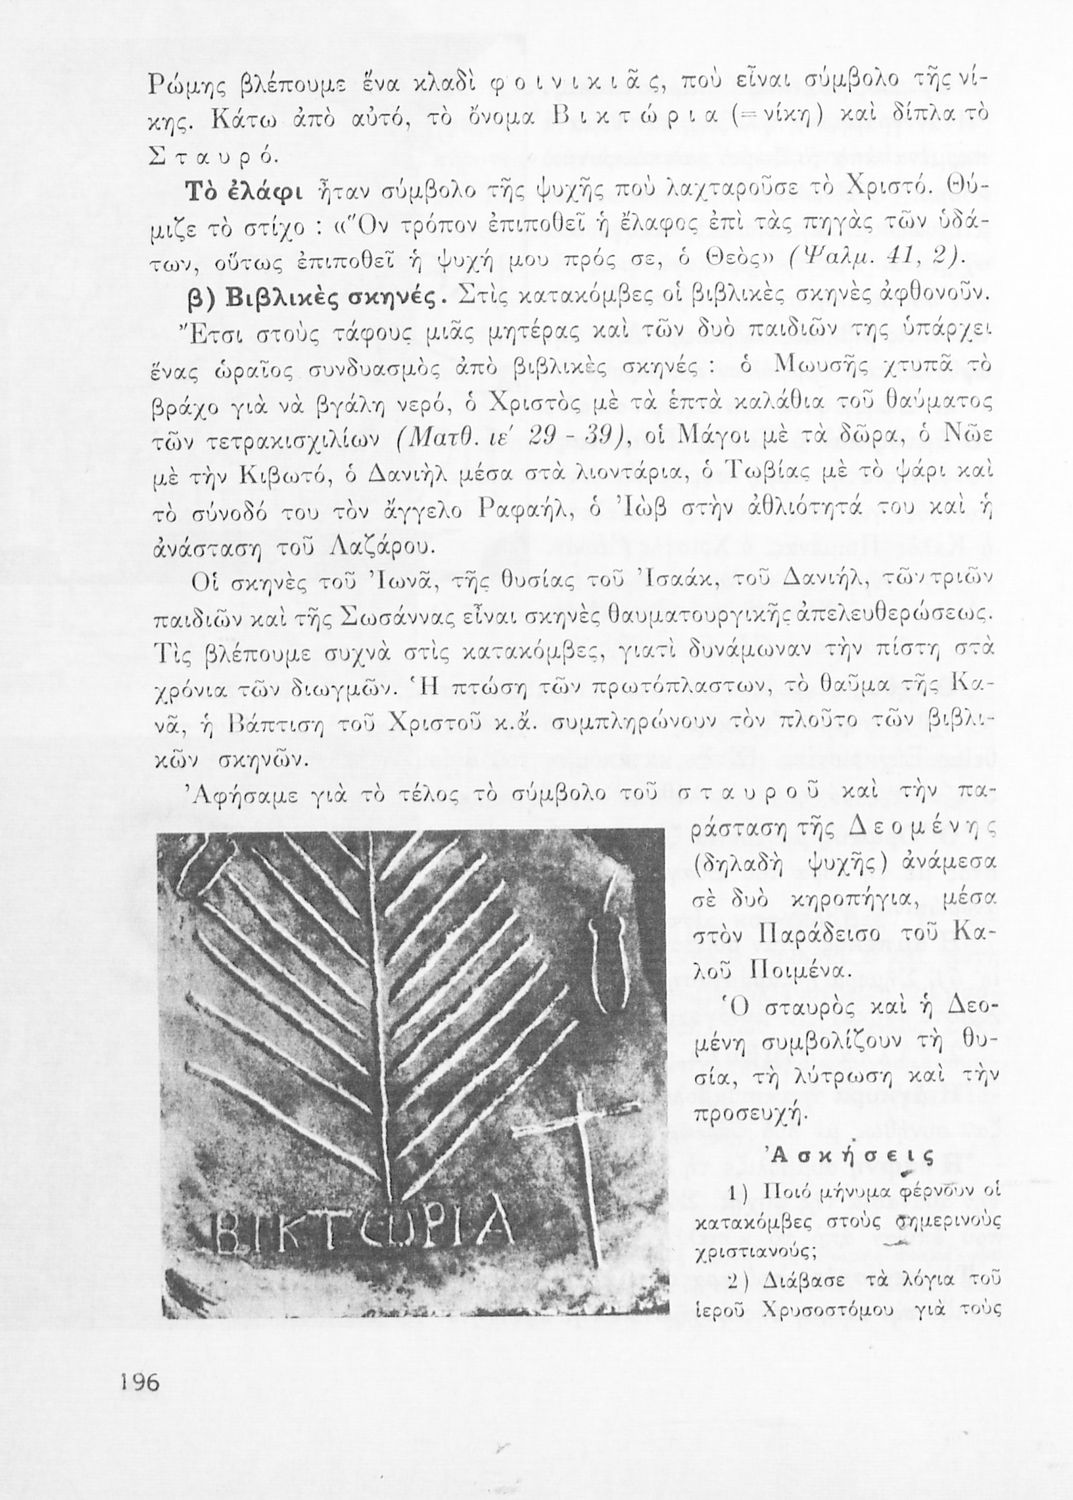 Ρώμης βλέπουμε ἕνα κλαδὶ φ ο ι ν ι κ ι ᾶ ς, ποὺ εἶναι σύμβολο τῆς νί-
κης. Κάτω ἀπὸ αὐτό, τὸ ὄνομα Β ι κ τ ώ ρ ι α (= νίκη) καὶ δίπλα τὸ
Σ τ α υ ρ ό.
Τὸ ἐλάφι ἦταν σύμβολο τῆς ψυχῆς ποὺ λαχταροῦσε τὸ Χριστό. Θύ-
μιζε τὸ στίχο : «Ὃν τρόπον ἐπιποθεῖ ἡ ἔλαφος ἐπὶ τὰς πηγὰς τῶν ὑδά-
των, οὕτως ἐπιποθεῖ ἡ ψυχή μου πρός σε, ὁ Θεὸς» (Ψαλμ. 41, 2).
β) Βιβλικὲς σκηνές. Στὶς κατακόμβες οἱ βιβλικὲς σκηνὲς ἀφθονοῦν.
Ἔτσι στοὺς τάφους μιᾶς μητέρας καὶ τῶν δυὸ παιδιῶν της ὑπάρχει
ἕνας ὡραῖος συνδυασμὸς ἀπὸ βιβλικὲς σκηνές : ὁ Μωυσῆς χτυπᾶ τὸ
βράχο γιὰ νὰ βγάλη νερό, ὁ Χριστὸς μὲ τὰ ἑπτὰ καλάθια τοῦ θαύματος
τῶν τετρακισχιλίων (Ματθ. ιε' 29 - 39), οἱ Μάγοι μὲ τὰ δῶρα, ὁ Νῶε
μὲ τὴν Κιβωτό, ὁ Δανιὴλ μέσα στὰ λιοντάρια, ὁ Τωβίας μὲ τὸ ψάρι καὶ
τὸ σύνοδό του τὸν ἄγγελο Ραφαήλ, ὁ Ἰὼβ στὴν ἀθλιότητά του καὶ ἡ
ἀνάσταση τοῦ Λαζάρου.
Οἱ σκηνὲς τοῦ Ἰωνᾶ, τῆς θυσίας τοῦ Ἰσαάκ, τοῦ Δανιήλ, τῶν τριῶν
παιδιῶν καὶ τῆς Σωσάννας εἶναι σκηνὲς θαυματουργικῆς ἀπελευθερώσεως.
Τὶς βλέπουμε συχνὰ στὶς κατακόμβες, γιατὶ δυνάμωναν τὴν πίστη στὰ
χρόνια τῶν διωγμῶν. Ἡ πτώση τῶν πρωτόπλαστων, τὸ θαῦμα τῆς Κα-
νᾶ, ἡ Βάπτιση τοῦ Χριστοῦ κ.ἄ. συμπληρώνουν τὸν πλοῦτο τῶν βιβλι-
κῶν σκηνῶν.
Ἀφήσαμε γιὰ τὸ τέλος τὸ σύμβολο τοῦ σ τ α υ ρ ο ῦ καὶ τὴν πα-
ράσταση τῆς Δ ε ο μ έ ν η ς
(δηλαδὴ ψυχῆς) ἀνάμεσα
σὲ δυὸ κηροπήγια, μέσα
στὸν Παράδεισο τοῦ Κα-
λοῦ Ποιμένα.
Ὁ σταυρὸς καὶ ἡ Δεο-
μένη συμβολίζουν τὴ θυ-
σία, τὴ λύτρωση καὶ τὴν
προσευχή.
Ἀ σ κ ή σ ε ι ς
1) Ποιό μήνυμα φέρνουν οἱ
κατακόμβες στοὺς σημερινοὺς
χριστιανούς;
2) Διάβασε τὰ λόγια τοῦ
ἱεροῦ Χρυσοστόμου γιὰ τοὺς
ΒΙΚΤΩΡΙΑ
196